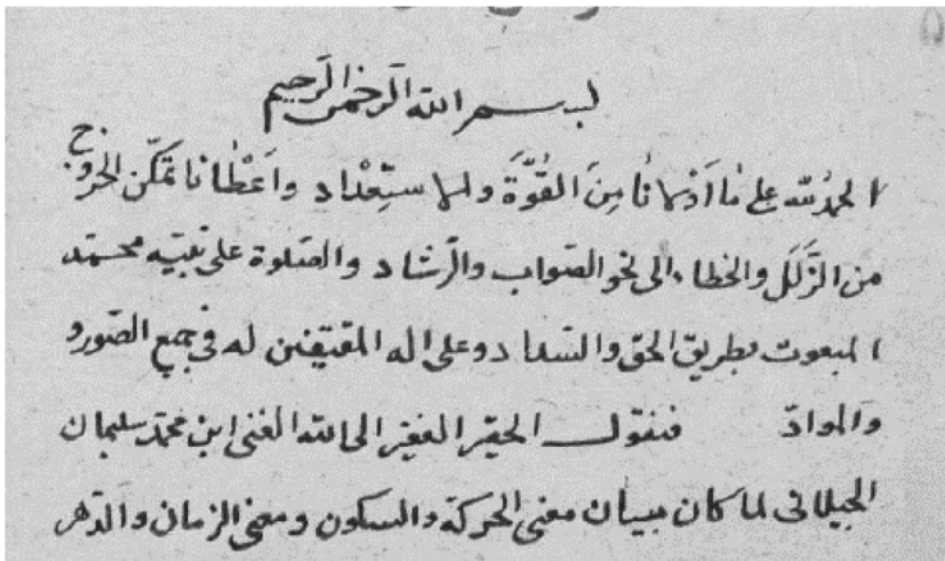 بسم الله الرحمن الرحيم
الحمد لله على ما اذهاننا من القوة والاستعداد واعطانا تمكن الخروج
من الزلل والخطاء الى نحو الصواب والرشاد والصلوة على نبيه محمد
المبعوث بطريق الحق والسداد وعلى اله المقتفين له في جميع الصور و
والمواد فنقول الحقير الفقير الى الله الغنى ابن محمد سليمان
الجيلانى لما كان بيان معنى الحركة والسكون ومعنى الزمان والدهر